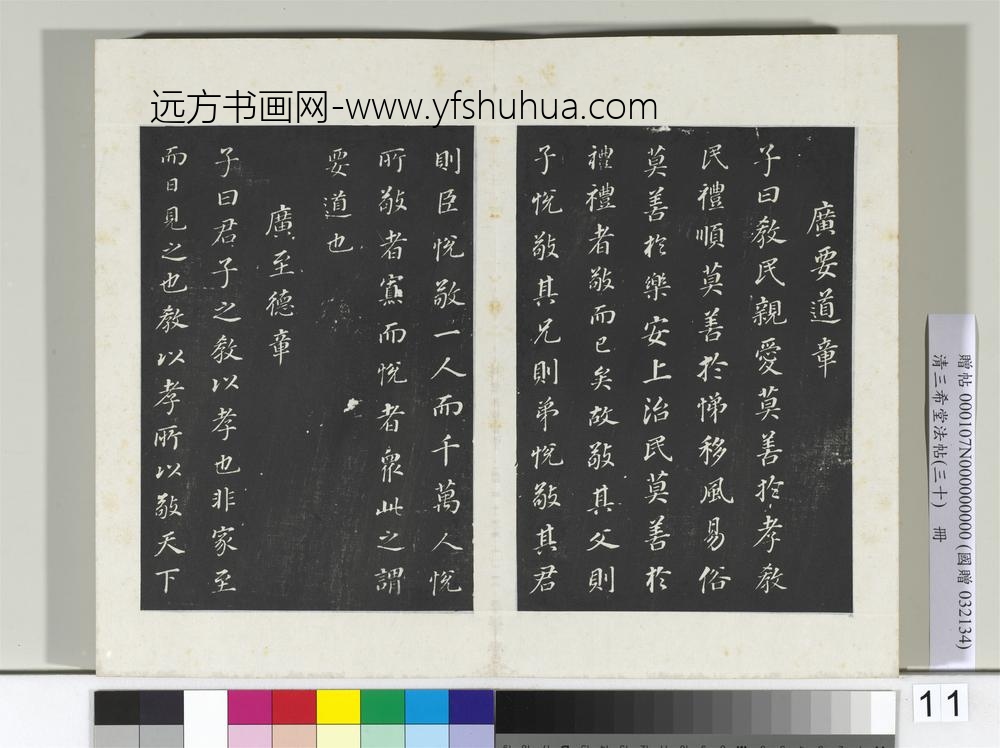 远方书画网-www.yfshuhua.com
廣要道章
子曰教民親愛莫善於孝教
民禮順莫善於悌移風易俗
莫善於樂安上治民莫善於
禮禮者敬而已矣故敬其父則
子悅敬其兄則弟悅敬其君
則臣悅敬一人而千萬人悅
所敬者寡而悅者衆此之謂
要道也
廣至德章
子曰君子之教以孝也非家至
而日見之也教以孝所以敬天下
贈帖 000107N000000000 (國贈 032134)
清三希堂法帖(三十) 冊
11